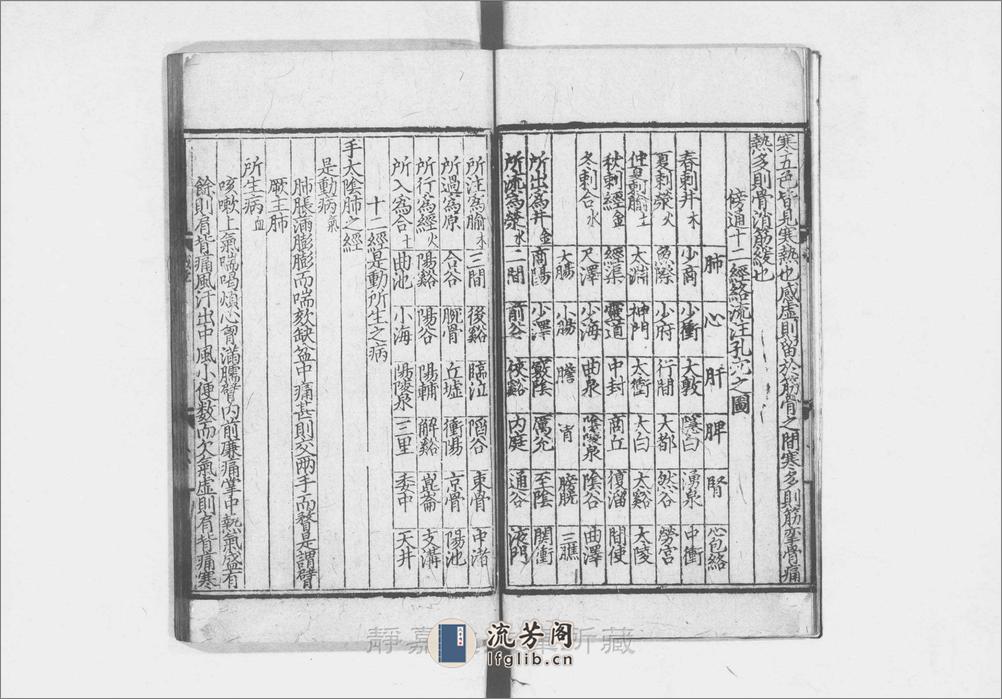 寒五色皆見寒熱也感虛則留於筋骨之間寒多則筋攣骨痛
熱多則骨消筋緩也
傍通十二經絡流注孔穴之圖
肺 心 肝 脾 腎 心包絡
春刺井木 少商 少衝 大敦 隱白 湧泉 中衝
夏刺滎火 魚際 少府 行間 大都 然谷 勞宮
仲夏刺腧土 太淵 神門 太衝 太白 太谿 大陵
秋刺經金 經渠 靈道 中封 商丘 復溜 間使
冬刺合水 尺澤 少海 曲泉 陰陵泉 陰谷 曲澤
大腸 小腸 膽 胃 膀胱 三膲
所出為井金 商陽 少澤 竅陰 厲兌 至陰 關衝
所流為滎水 二間 前谷 俠谿 內庭 通谷 液門
所注為腧木 三間 後谿 臨泣 陷谷 束骨 中渚
所過為原 合谷 腕骨 丘墟 衝陽 京骨 陽池
所行為經火 陽谿 陽谷 陽輔 解谿 崑崙 支溝
所入為合土 曲池 小海 陽陵泉 三里 委中 天井
十二經是動所生之病
手太陰肺之經
是動病氣
肺脹滿膨膨而喘欬缺盆中痛甚則交兩手而瞀是謂臂
厥主肺
所生病血
咳嗽上氣喘喝煩心胷滿臑臂內前廉痛掌中熱氣盛有
餘則肩背痛風汗出中風小便數而欠氣虛則肩背痛寒
流芳阁
lfglib.cn